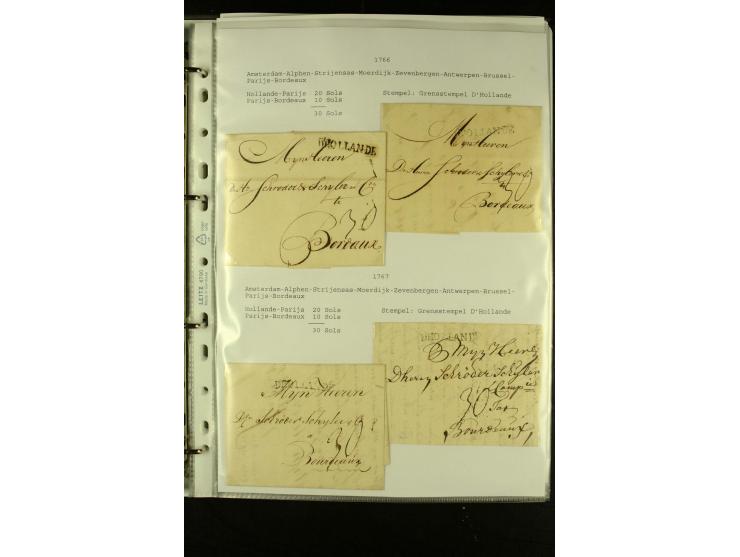 1766
Amsterdam-Alphen-Strijensas-Moerdijk-Zevenbergen-Antwerpen-Brussel-
Parijs-Bordeaux
Hollande-Parijs 20 Sols
Parijs-Bordeaux 10 Sols
30 Sols
Stempel: Grensstempel D'Hollande
DHOLLANDE
Myn Heeren
Schröder & Schyler & Co
te
30
Bordeaux
HOLLANDE
Myn Heeren
De Heeren Schröder Schyler
30
Bordeaux
1767
Amsterdam-Alphen-Strijensas-Moerdijk-Zevenbergen-Antwerpen-Brussel-
Parijs-Bordeaux
Hollande-Parijs 20 Sols
Parijs-Bordeaux 10 Sols
30 Sols
Stempel: Grensstempel D'Hollande
Myn Heeren
Schröder Schyler
30
Bourdeaux
DHOLLANDE
Myn Heeren
D heeren Schröder Schyler
Compie
30 Tot
Bourdeaux
LEITZ 4790